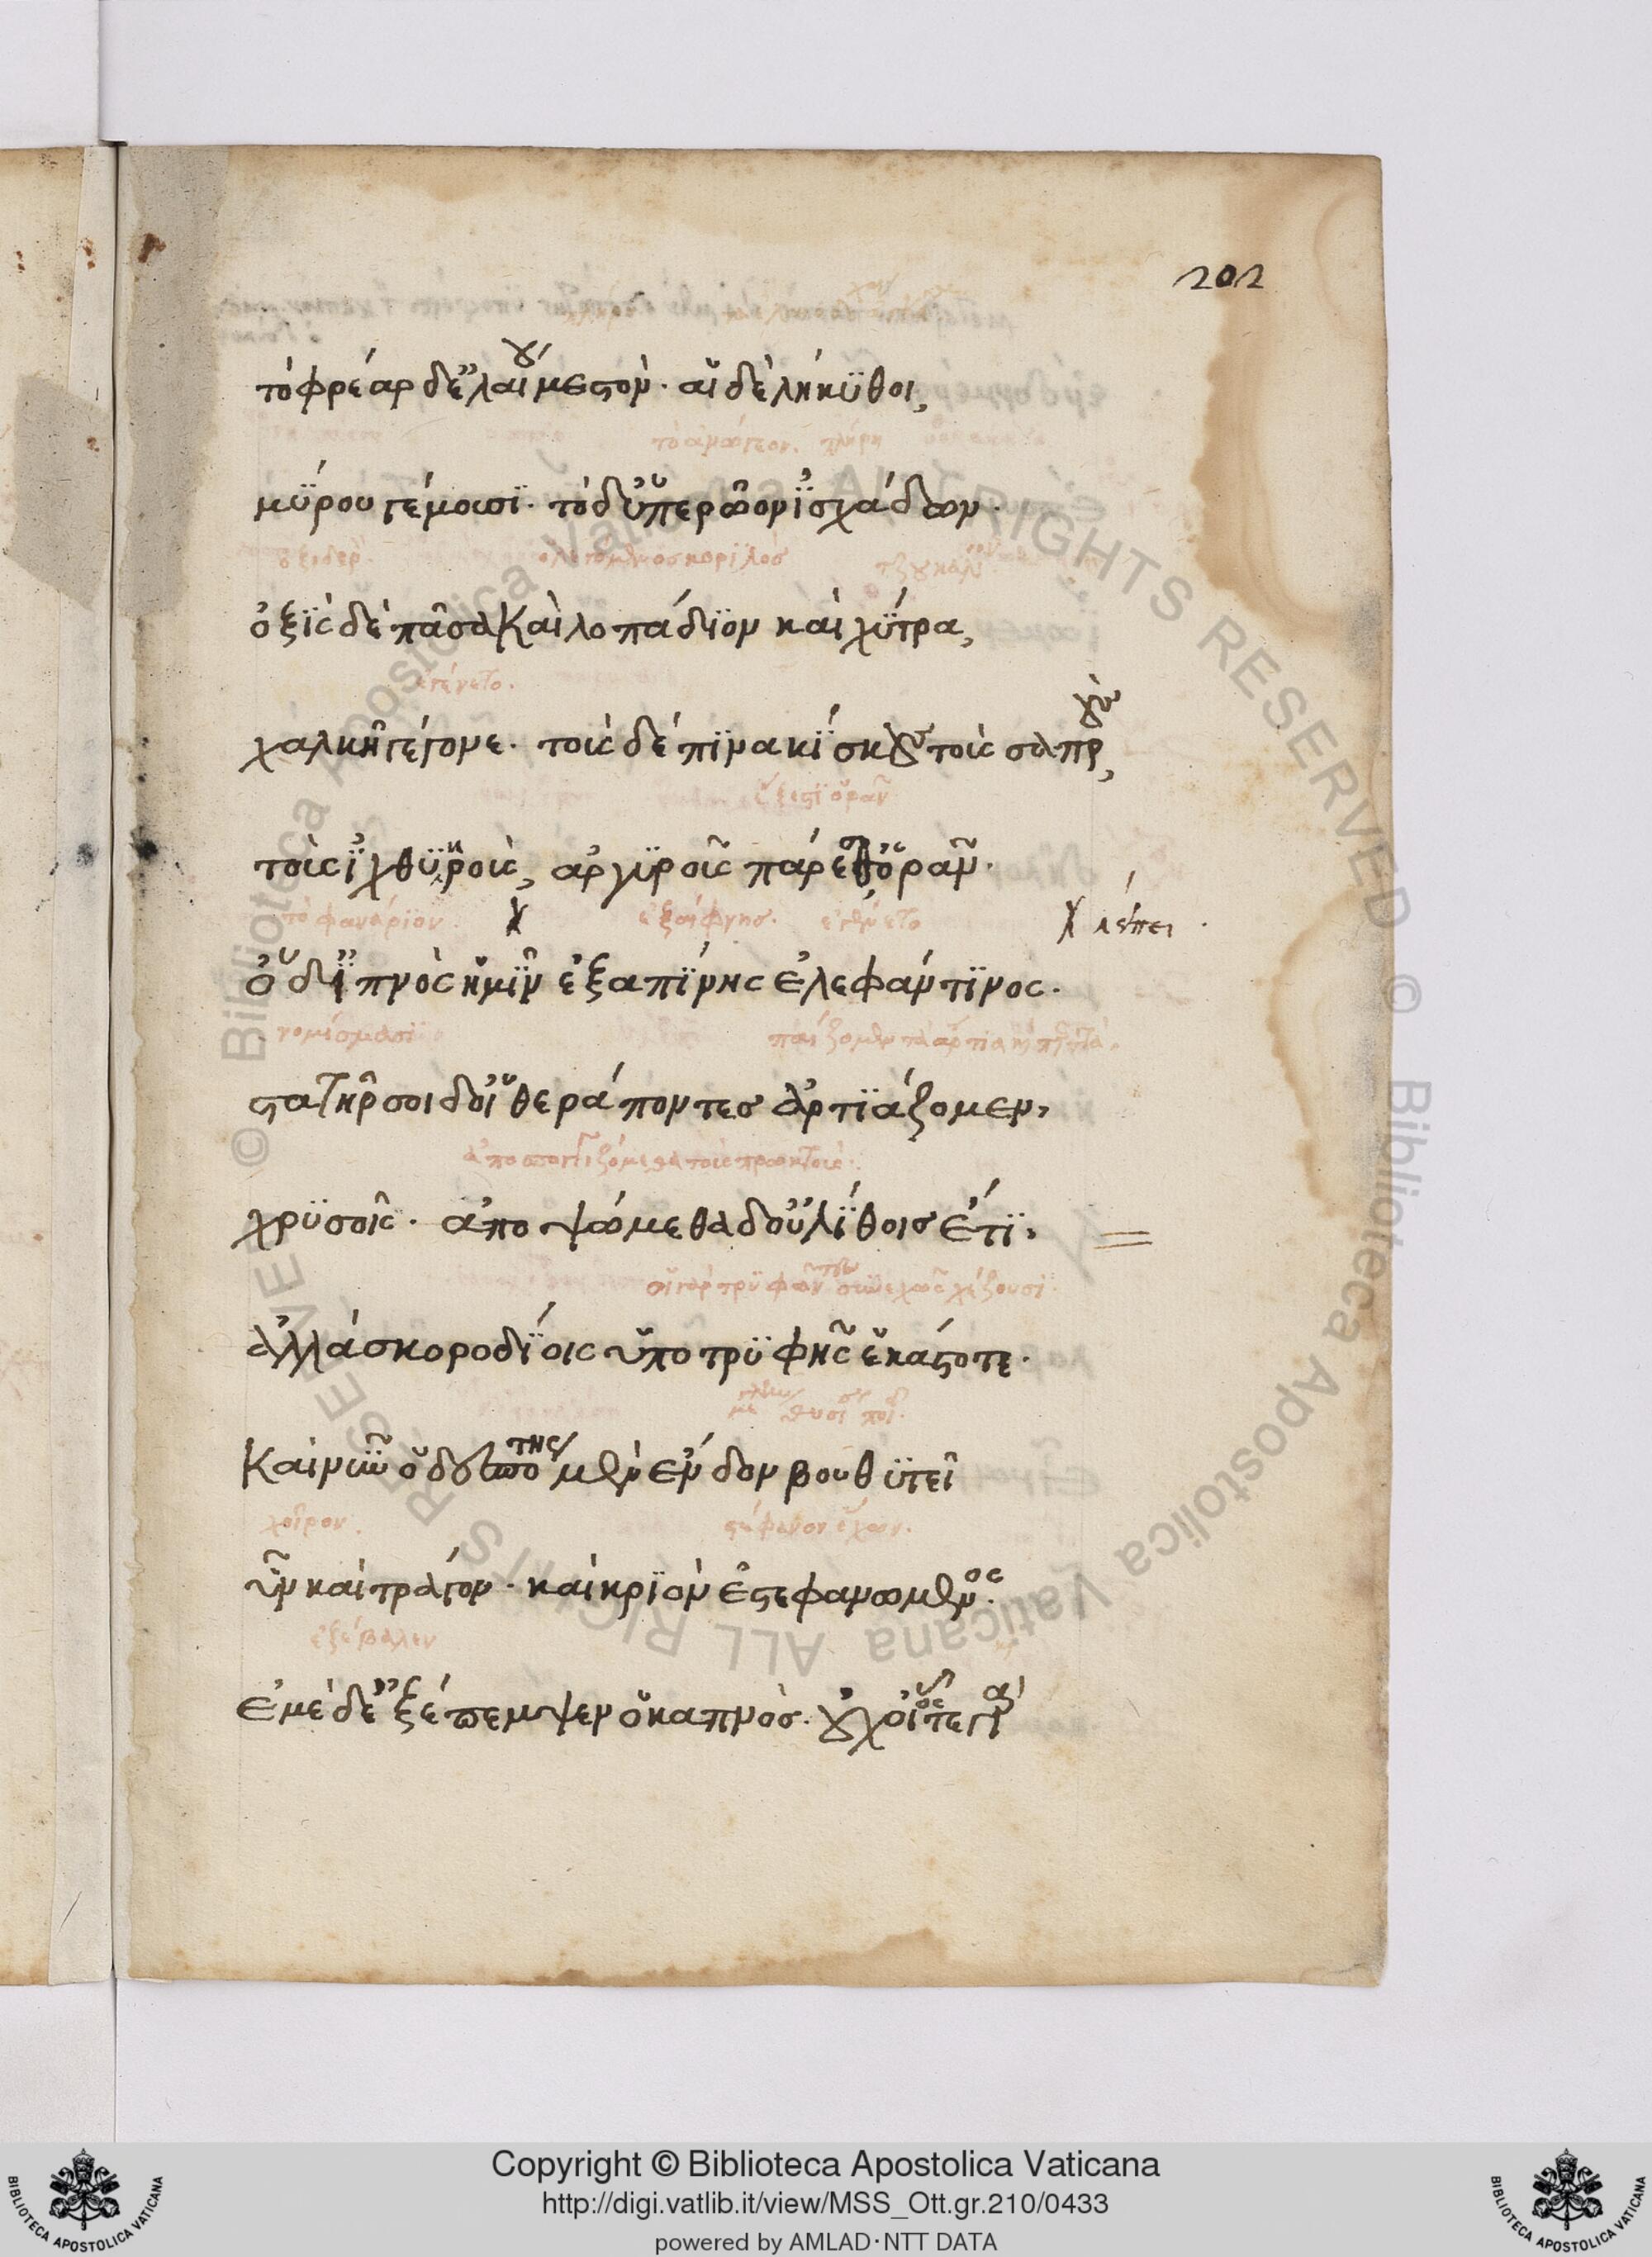 202
τὸ φρέαρ δ' ἐλαίου μεστόν· αἱ δὲ λήκυθοι,
τὸ ἀνώγεον. πλήρη
μύρου γέμουσι· τὸ δ' ὑπερῶον ἰσχάδων·
ὀξὶς δὲ πᾶσα καὶ λοπάδιον καὶ χύτρα,
ἐγένετο.
χαλκῆ γέγονε· τοὺς δὲ πινακίσκους τοὺς σαπροὺς,
ἔξεστι ὁρᾶν
τοὺς ἰχθυηροὺς, ἀργυροῦς πάρεσθ' ὁρᾶν·
τὸ φανάριον. ἐξαίφνης. ἐγένετο
λείπει
ὁ δ' ἰπνὸς ἡμῖν ἐξαπίνης ἐλεφάντινος·
νομίσμασι
στατῆρσι δ' οἱ θεράποντες ἀρτιάζομεν,
χρυσοῖς· ἀποψώμεθα δ' οὐ λίθοις ἔτι,
ἀλλὰ σκοροδίοις ὑπὸ τρυφῆς ἑκάστοτε·
καὶ νῦν ὁ δεσπότης μὲν ἔνδον βουθυτεῖ
χοῖρον. στέφανον ἔχων.
ὗν καὶ τράγον· καὶ κριὸν ἐστεφανωμένος·
ἐξέβαλεν
ἐμὲ δ' ἐξέπεμψεν ὁ καπνὸς· οὐχ οἷός τε γὰρ
Copyright © Biblioteca Apostolica Vaticana
http://digi.vatlib.it/view/MSS_Ott.gr.210/0433
powered by AMLAD·NTT DATA
BIBLIOTECA APOSTOLICA VATICANA
BIBLIOTECA APOSTOLICA VATICANA
© Biblioteca Apostolica Vaticana ALL RIGHTS RESERVED
© Biblioteca Apostolica Vaticana ALL RIGHTS RESERVED